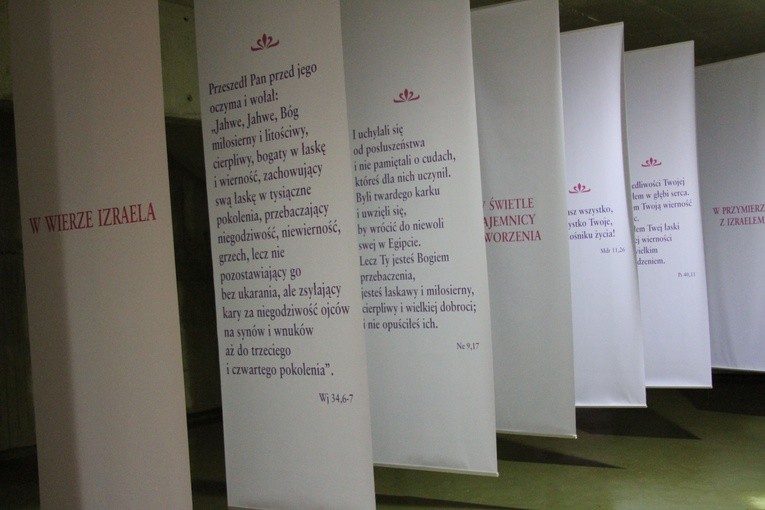 W WIERZE IZRAELA
Przeszedł Pan przed jego
oczyma i wołał:
„Jahwe, Jahwe, Bóg
miłosierny i litościwy,
cierpliwy, bogaty w łaskę
i wierność, zachowujący
swą łaskę w tysiączne
pokolenia, przebaczający
niegodziwość, niewierność,
grzech, lecz nie
pozostawiający go
bez ukarania, ale zsyłający
kary za niegodziwość ojców
na synów i wnuków
aż do trzeciego
i czwartego pokolenia”.
Wj 34,6-7
I uchylali się
od posłuszeństwa
i nie pamiętali o cudach,
któreś dla nich uczynił.
Byli twardego karku
i uwzięli się,
by wrócić do niewoli
swej w Egipcie.
Lecz Ty jesteś Bogiem
przebaczenia,
jesteś łaskawy i miłosierny,
cierpliwy i wielkiej dobroci;
i nie opuściłeś ich.
Ne 9,17
W ŚWIETLE
AJEMNICY
WORZENIA
asz wszystko,
ystko Twoje,
ośniku życia!
Mdr 11,26
edliwości Twojej
em w głębi serca,
m Twoją wierność
c.
em Twej łaski
ej wierności
ielkim
dzeniem.
Ps 40,11
W PRZYMIERZ
Z IZRAELEM